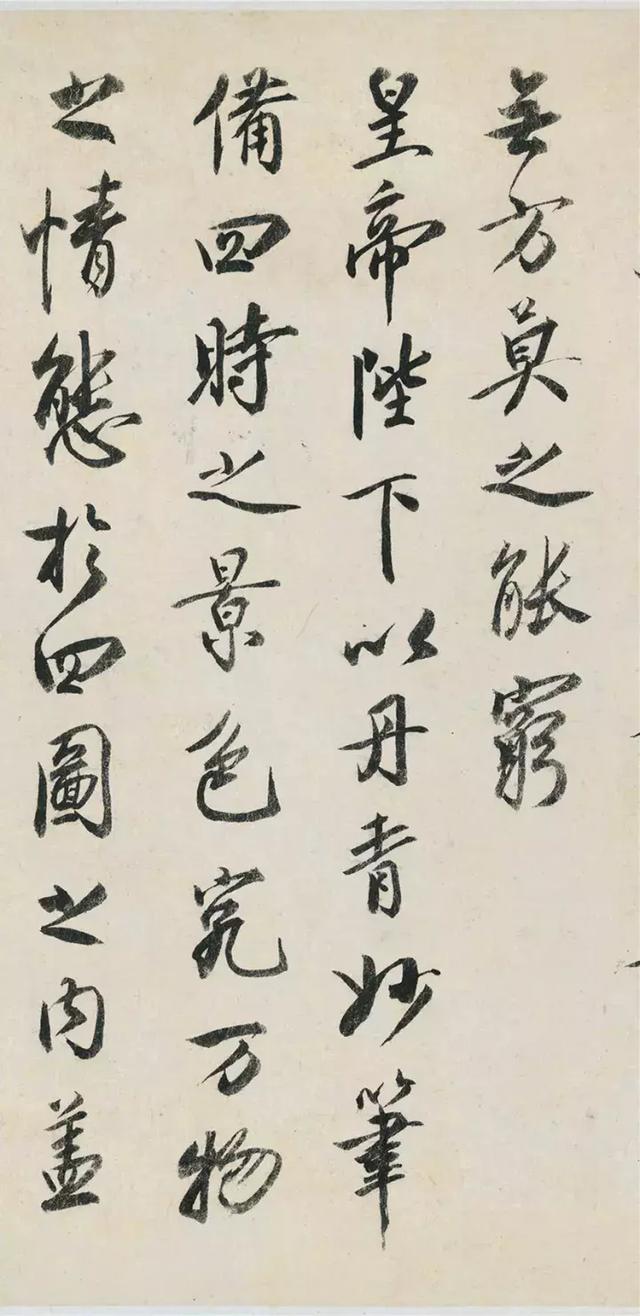 無方莫之能窮
皇帝陛下以丹青妙筆
備四時之景色究万物
之情態於四圖之内盖